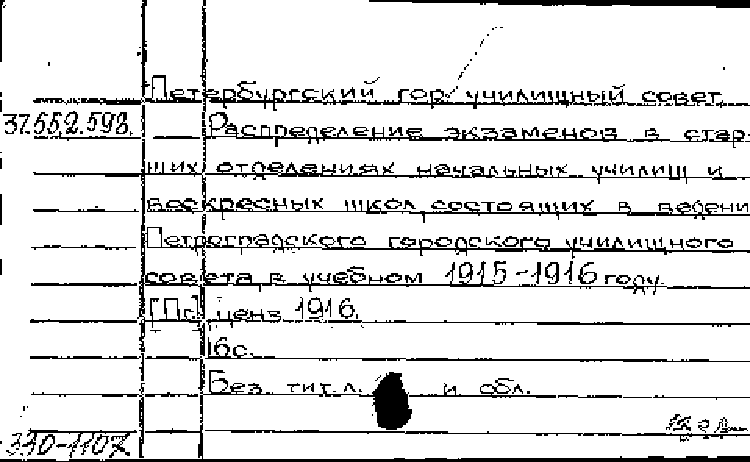 Петербургский гор. училищный совет.
37.552.593. Распределение экзаменов в стар-
ших отделениях начальных училищ и
воскресных школ, состоящих в ведени
Петроградского городского училищного
совета в учебном 1915-1916 году.
[Пг.] ценз. 1916.
16с.
Без тит.л. и обл.
330-1107